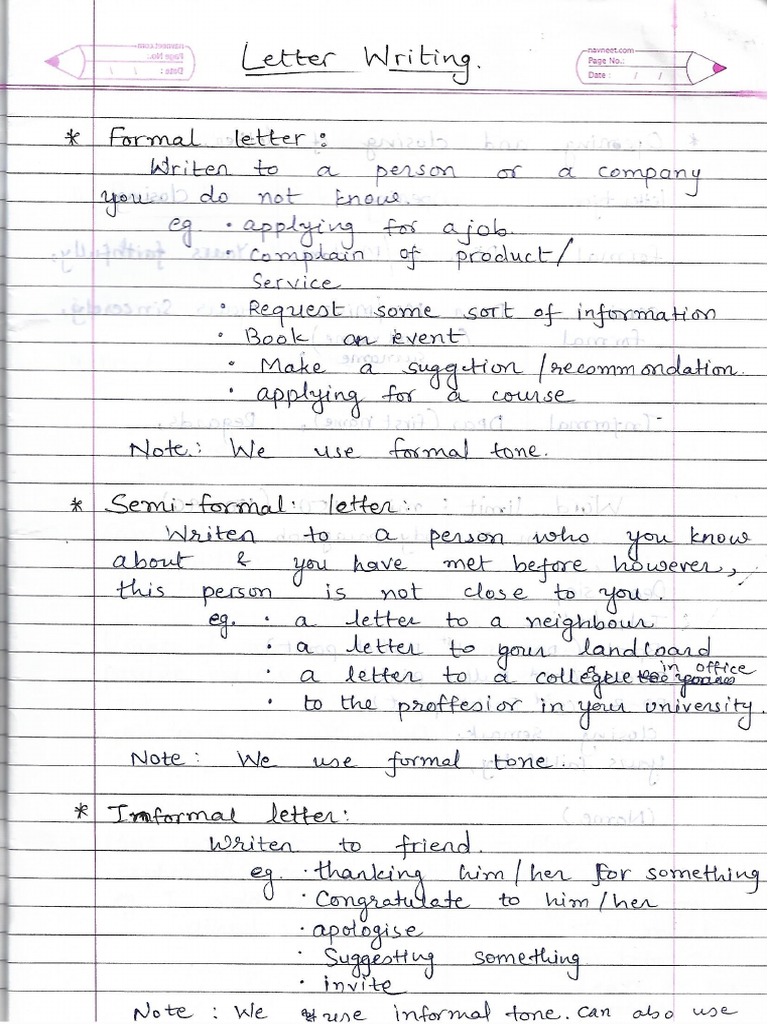 navneet.com
Page No.:
Date : / /
Letter Writing.
* Formal letter:
Writen to a person or a company
you do not know.
eg. • applying for a job.
• complain of product/
Service
• Request some sort of information
• Book an event
• Make a suggetion /recommondation.
• applying for a course
Note.: We use formal tone.
* Semi-formal: letter:
Writen to a person who you know
about & you have met before however,
this person is not close to you.
eg. • a letter to a neighbour
• a letter to your landloard
• a letter to a in office
• to the proffesior in your university.
Note: We use formal tone.
* Informal letter:
Writen to friend.
eg. • thanking him/her for something
• Congratulate to him/her
• apologise
• Suggesting something
• invite
Note : We use informal tone. can also use